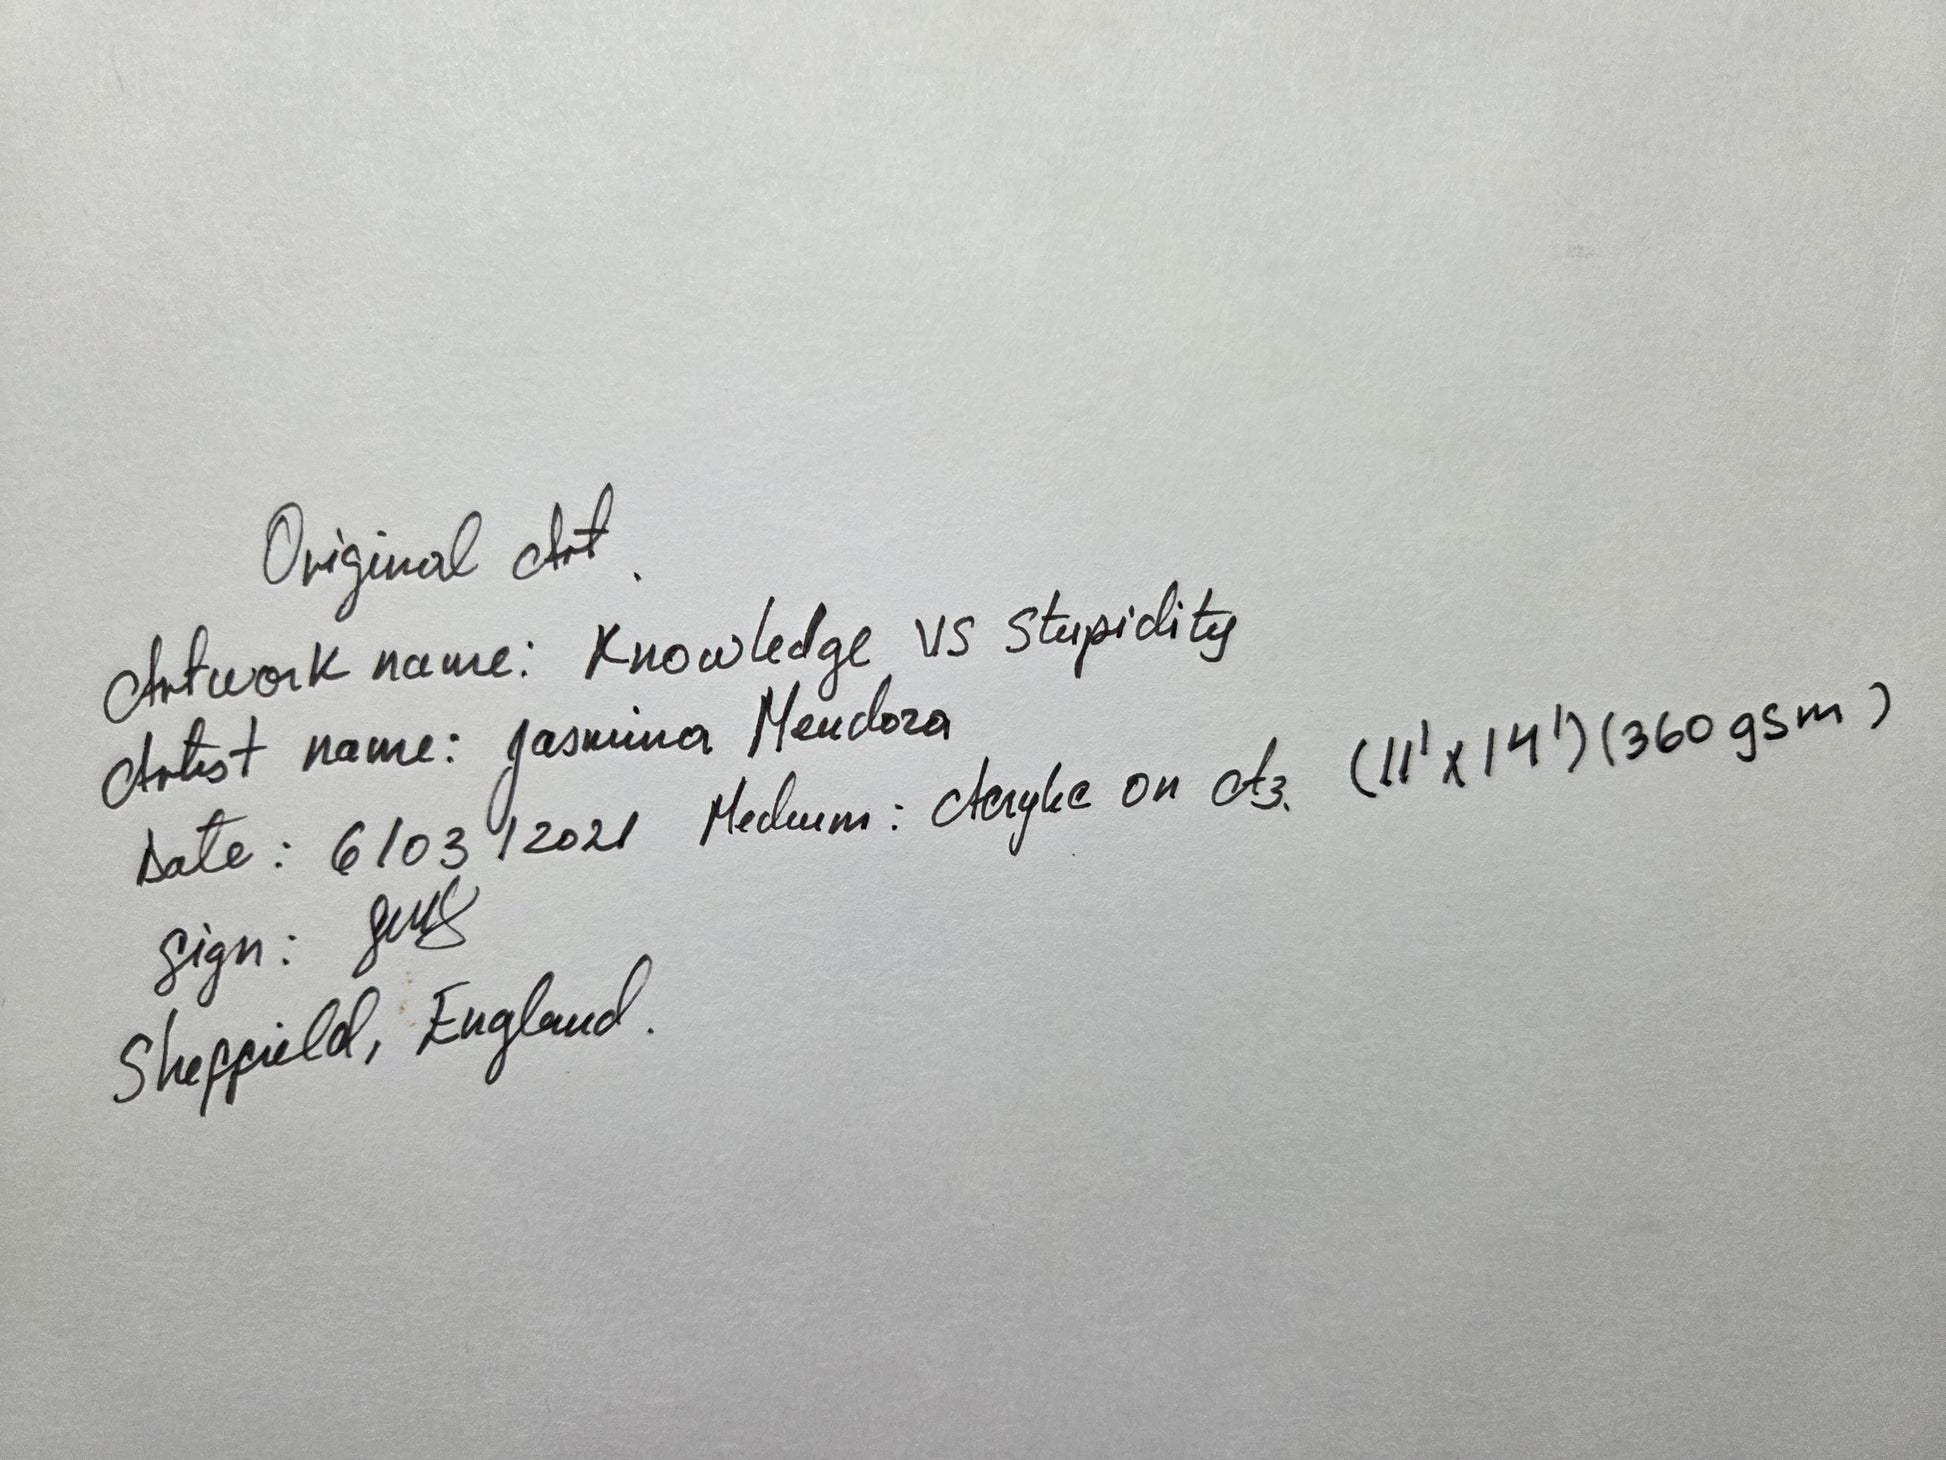 Original Art.
Artwork name: Knowledge VS Stupidity
Artist name: Jasmina Mendoza
Date: 6/03/2021 Medium: Acrylic on A3. (11' x 14') (360 gsm)
Sign:
Sheffield, England.